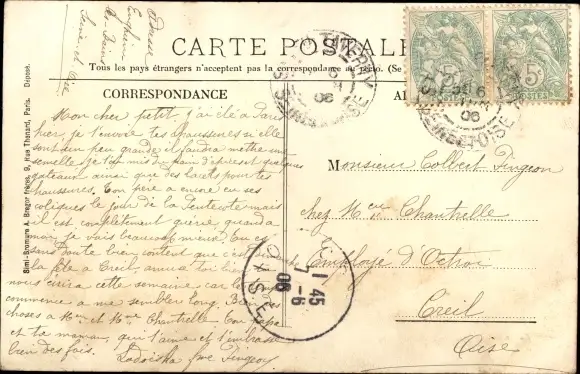 Adresse
Enghien
les Bains
Seine et Oise
CARTE POSTALE
Tous les pays étrangers n'acceptent pas la correspondance au recto. (Se
CORRESPONDANCE
Simi-Bromure A. Breger frères, 9, Rue Thénard, Paris. Déposé.
Mon cher petit, j'ai été à Paris
hier, je t'envoie tes chaussures si elle
sont un peu grande il faudra mettre une
semelle je t'ai mis du pain d'épices et quelques
gateaux ainsi que des lacets pour tes
chaussures. Ton père a encore eu ses
coliques le jour de la Pentecote mais
il est complètement guérie quand a
moi je vais beaucoup mieux. Tu es
sans doute bien content que c'est
la fête à Creil, amuse toi bien
nous cette semaine car le temps
commence a me sembler long. Bien
choses à Mr et Mme Chantrelle Ton papa
et ta maman, qui t'aime et t'embrasse
bien des fois.
Monsieur Colbert Fingeon
chez Mr Chantrelle
Employé d'Octroi
Creil
Oise
06
SEINE-ET-OISE
5
POSTES
06
SEINE-ET-OISE
1 45
7 - 6
06
OISE